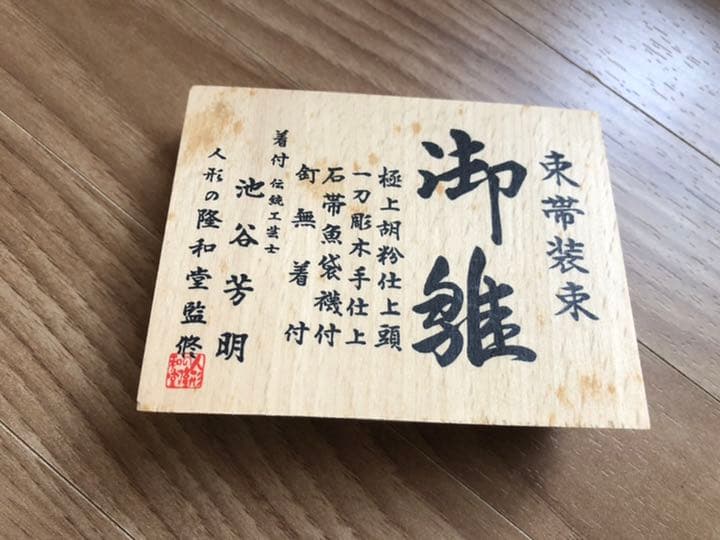 束帯装束
御雛
極上胡粉仕上頭
一刀彫木手仕上
石帯魚袋襪付
釘無着付
着付 伝統工芸士
池谷芳明
人形の隆和堂監修
人形の隆和堂